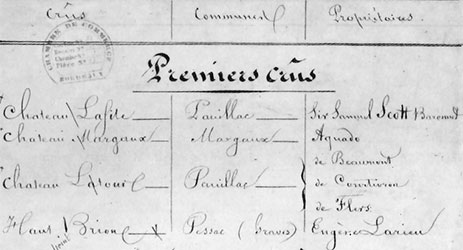 Crûs Communes Propriétaires
CHAMBRE DE COMMERCE
BORDEAUX
Premiers crûs
Chateau Lafite Pauillac Sir Samuel Scott Baronnet
Chateau Margaux Margaux Aguado
de Beaumont
Chateau Latour Pauillac de Courtivron
de Flers
Haut Brion Pessac (Graves) Eugene Larieu